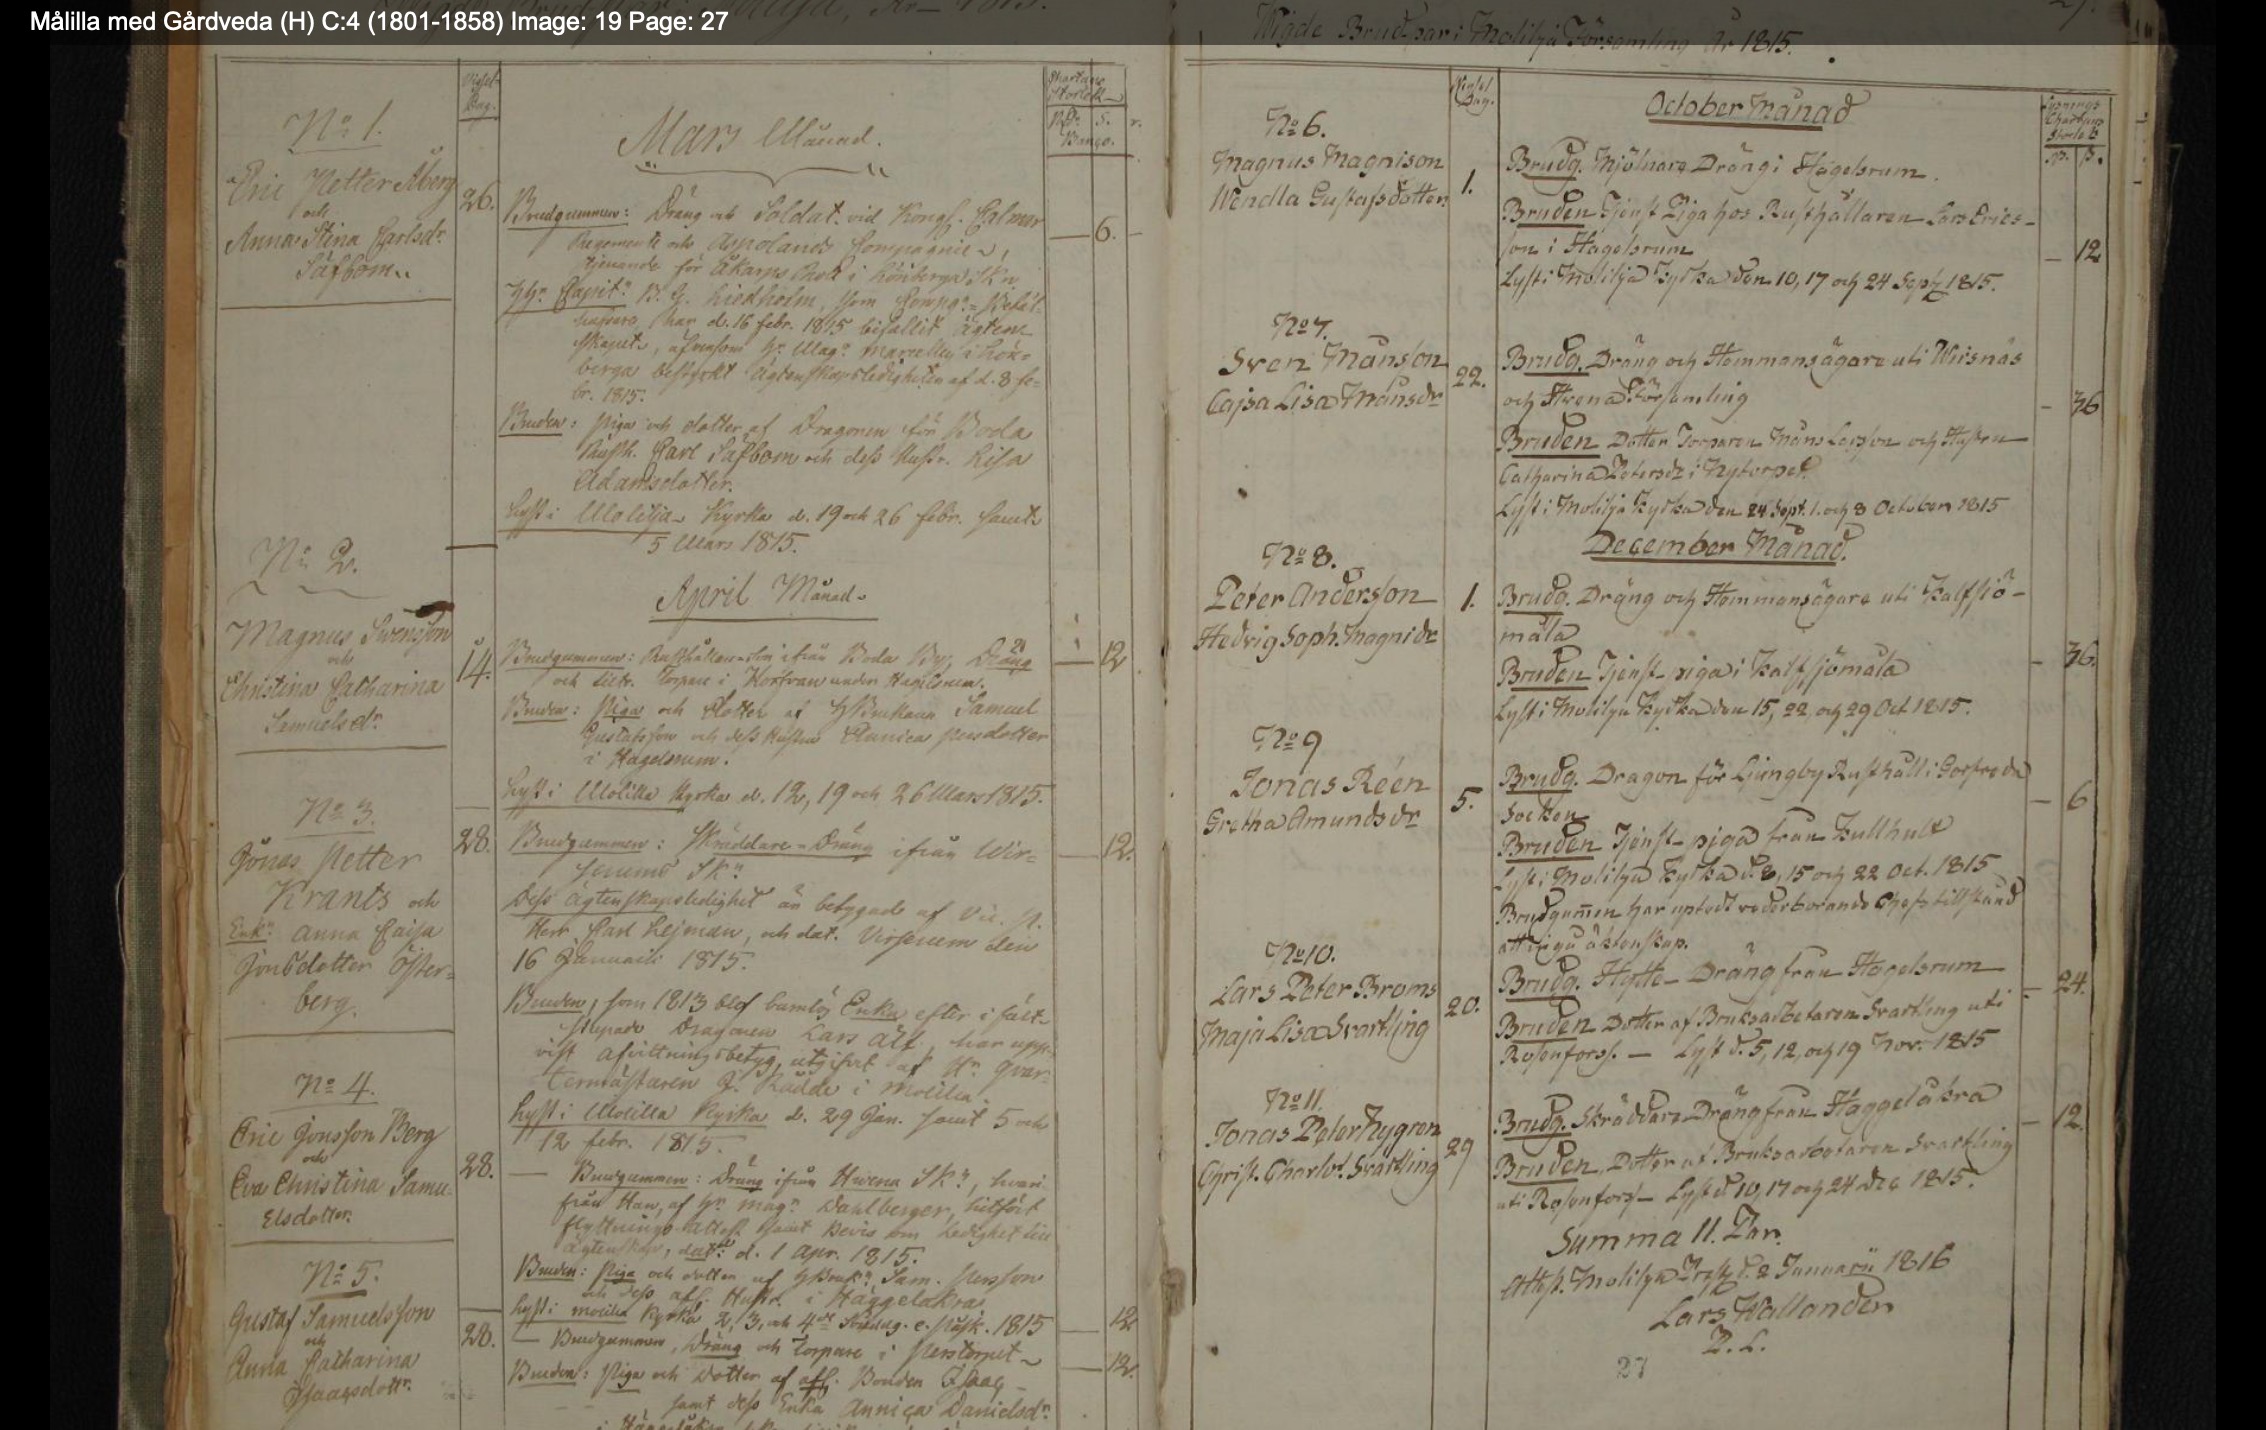 Målilla med Gårdveda (H) C:4 (1801-1858) Image: 19 Page: 27
No 1.
Eric Petter Åberg
och
Anna Stina Carlsdr.
Säfbom.
26.
Mars Månad.
Brudgummen: Dräng och Soldat vid Kongl. Calmar
Regemente och Aspelands Compagnie,
tjenande för Åkarps Rote i Lönberga Skn.
Hr Capit. Liedholm, som Comp.
har d. 16 febr. 1815 bifallit ägten-
skapet, äfvensom Hr Mag. i Lön-
berga bestyrkt ägtenskapsledigheten af d. 8 fe-
br. 1815.
Bruden: Piga och dotter af Dragonen för Boda
Rusth. Carl Säfbom och dess Hustr. Lisa
Adamsdotter.
Lyst i Molilja Kyrka d. 19 och 26 febr. samt
5 Mars 1815.
6.
No 2.
Magnus Swensson
och
Christina Catharina
Samuelsdr.
14.
April Månad.
Brudgummen: ifrån Boda By, Dräng
och Torpare i under Hagelsrum.
Bruden: Piga och Dotter af HBrukaren Samuel
Gustafsson och dess Hustru Annica Persdotter
i Hagelsrum.
Lyst i Molilla Kyrka d. 12, 19 och 26 Mars 1815.
12
No 3.
Jonas Petter
Krants och
Enk. Anna Caisa
Jonsdotter Öster-
berg.
28.
Brudgummen: Skräddare-Dräng ifrån Wir-
serums Sk.
Dess ägtenskapsledighet är betygade af Vic. P.
Herr Carl Lejman, och dat. Virserum den
16 Januarii 1815.
Bruden, som 1813 blef barnlös Enka efter i fält-
Dragonen Lars Alf, har upp-
vist afvittringsbetyg, utgifvet af Hr Qvar-
termästaren J. Rådde i Molilla.
Lyst i Molilla Kyrka d. 29 Jan. samt 5 och
12 febr. 1815.
12.
No 4.
Eric Jonsson Berg
och
Eva Christina Samu-
elsdotter.
28.
Brudgummen: Dräng ifrån Hwena Sk., hvari-
från Han, af Hr Mag. Dahlberger, hitfört
flyttnings-attest samt bevis om ledighet till
ägtenskap, dat. d. 1 Apr. 1815.
Bruden: Piga och dotter af HBruk. Sam. Persson
och dess afl. Hustr. i Häggelåkra.
Lyst i Molilla Kyrka 2, 3, och 4de Söndag. e. Påsk. 1815
12
No 5.
Gustaf Samuelsson
och
Anna Catharina
Isaacsdottr.
28.
Brudgummen, Dräng och Torpare i Perstorpet
Bruden: Piga och Dotter af afl. Bonden Isaac
samt dess Enka Annica Danielsdr.
12.
Wigde Brudpar i Molilja Församling År 1815.
27.
October Månad
No 6.
Magnus Magnison
Wendla Gustafsdotter
1.
Brudg. Mjölnare Dräng i Hagelsrum.
Bruden Tjenst Piga hos Rusthållaren Lars Erics-
son i Hagelsrum
Lyst i Molilja Kyrka den 10, 17 och 24 Sept. 1815.
12
No 7.
Sven Månsson
Cajsa Lisa Månsdr
22.
Brudg. Dräng och Hemmansägare uti Wirsnäs
och Hvena Församling
Bruden Dotter Torparen Måns Larsson och Hustrun
Catharina Petersdr i Nytorpet.
Lyst i Molilja Kyrka den 24 Sept. 1. och 8 October 1815
36
December Månad.
No 8.
Peter Andersson
Hedvig Soph. Magnidr
1.
Brudg. Dräng och Hemmansägare uti Kalfsjö-
måla
Bruden Tjenst-piga i Kalfsjömåla
Lyst i Molilja Kyrka den 15, 22 och 29 Oct 1815.
36.
No 9
Jonas Réen
Gretha Amundsdr
5.
Brudg. Dragon för Liungby Rusthåll i
Socken
Bruden Tjenst-piga från Kullhult
Lyst i Molilja Kyrka d. 8, 15 och 22 Oct. 1815
Brudgummen har uptedt vederbörande Chefs tillstånd
att ingå äktenskap.
6
No 10.
Lars Peter Broms
Maja Lisa Svartling
20.
Brudg. Hytte-Dräng från Hagelsrum
Bruden Dotter af Bruksarbetaren Svartling uti
Rosenfors. — Lyst d. 5, 12, och 19 Nov. 1815
24.
No 11.
Jonas Peter Nygren
Christ. Charlot. Svartling
29
Brudg. Skräddare Dräng från Häggelåkra
Bruden, Dotter af Bruksarbetaren Svartling
uti Rosenfors — Lyst d. 10, 17 och 24 Dec 1815.
12.
Summa 11. Par.
Attest. Molilja Prestg. d. 2 Januarii 1816
Lars Wallander
P. L.